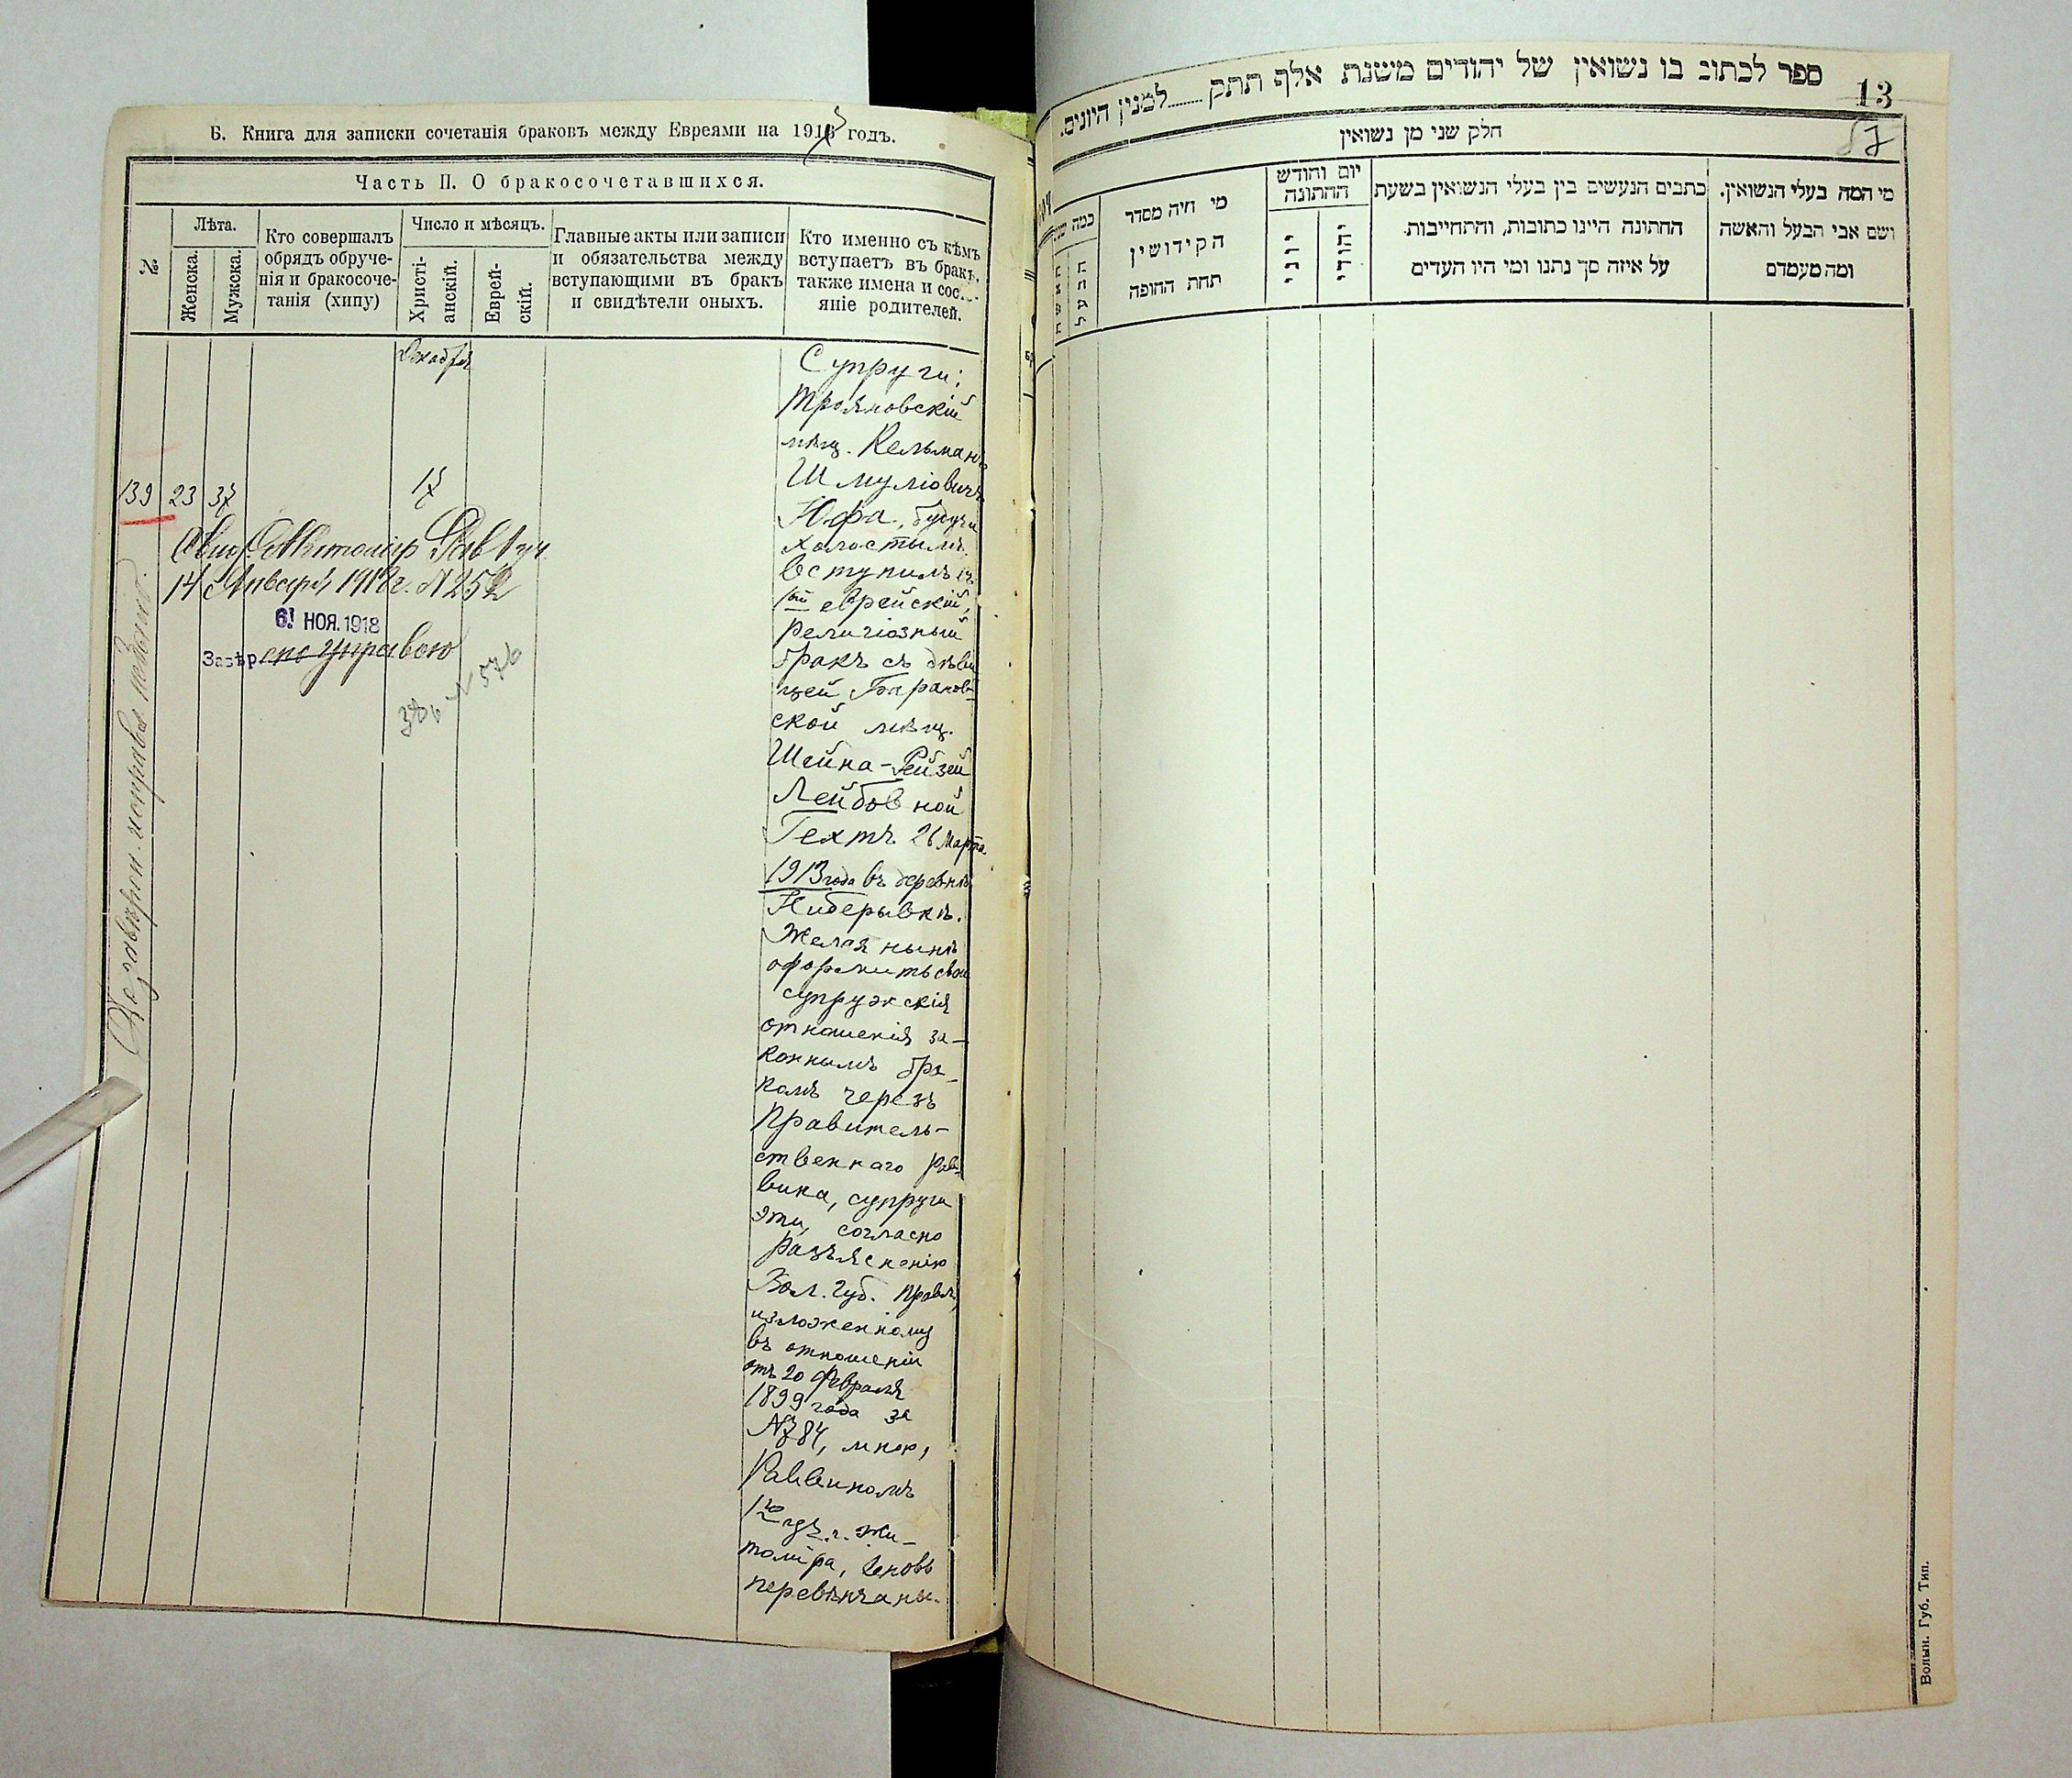 Б. Книга для записки сочетанія браковъ между Евреями на 1915 годъ.
Часть II. О бракосочетавшихся.
№
Лѣта.
Женска.
Мужска.
Кто совершалъ
обрядъ обруче-
нія и бракосоче-
танія (хипу)
Число и мѣсяцъ.
Христі-
анскій.
Еврей-
скій.
Главные акты или записи
и обязательства между
вступающими въ бракъ
и свидѣтели оныхъ.
Кто именно съ кѣмъ
вступаетъ въ бракъ,
также имена и сос
яніе родителей.
Декабря
139 23 37 17
Супруги;
Трояновскій
мѣщ. Кельманъ
Шмуліовичъ
Юфа, будучи
холостымъ
вступилъ въ
1ый еврейскій,
религіозный
бракъ съ дѣви
цей Баранов-
ской мѣщ.
Шейна-Рейзей
Лейбовной
Гехтъ 26 Марта
1913 года въ деревнѣ
Желая нынѣ
оформить свои
супружскія
отношенія за-
коннымъ бра-
комъ черезъ
Правитель-
ственнаго Рав-
вина, супруги
эти, согласно
разъясненію
Вол. Губ. Правл.,
изложенному
въ отношеніи
отъ 20 Февраля
1899 года за
№784, мною,
Раввиномъ
1го уч. г. Жи-
томіра, вновь
перевѣнчаны.
14 Января 1918 г. №252
6! НОЯ. 1918
Завѣрено управою
№ 576
13
87
ספר לכתוב בו נשואין של יהודים משנת אלף תתק........למנין היונים.
חלק שני מן נשואין
כמה
האשה
הבעל
מי היה מסדר
הקידושין
תחת החופה
יום וחודש
החתונה
יוני
יהודי
כתבים הנעשים בין בעלי הנשואין בשעת
החתונה היינו כתובות, והתחייבות
על איזה סך נתנו ומי היו העדים
מי המה בעלי הנשואין.
ושם אבי הבעל והאשה
ומה מעמדם
Волын. Губ. Тип.